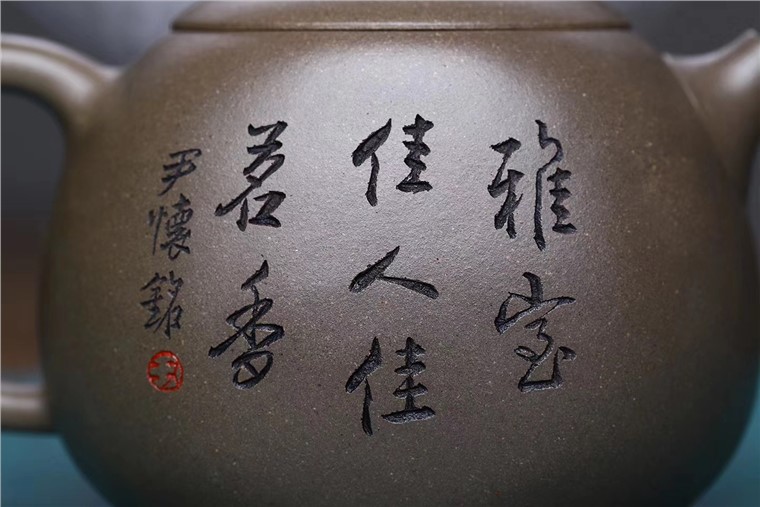 雅室
佳人佳
茗香
尹懷銘